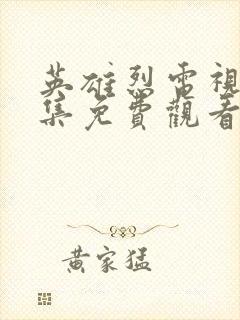 英雄烈電視
集免費觀看
黃家猛